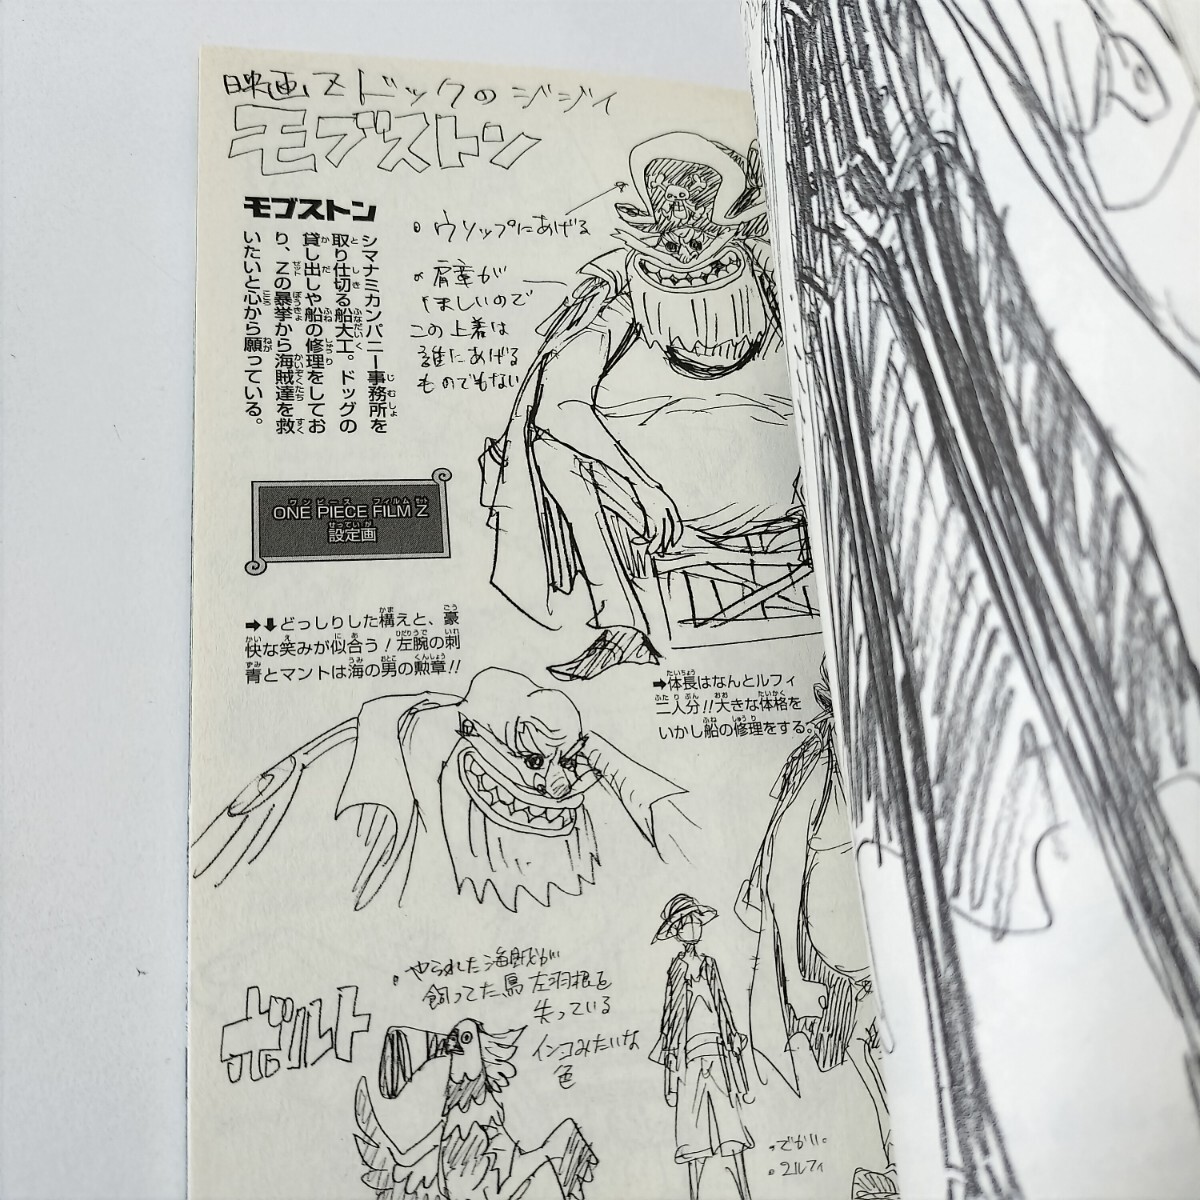 映画Zドックのジジイ
モブストン
モブストン
シマナミカンパニー事務所を
取り仕切る船大工。ドッグの
貸し出しや船の修理をしてお
り、Zの暴挙から海賊達を救
いたいと心から願っている。
・ウソップにあげる
・肩章が
ほしいので
この上着は
誰にあげる
ものでもない
ONE PIECE FILM Z
設定画
➡⬇どっしりした構えと、豪
快な笑みが似合う!左腕の刺
青とマントは海の男の勲章!!
➡体長はなんとルフィ
二人分!!大きな体格を
いかし船の修理をする。
ガルト
・やられた海賊が
飼ってた鳥 左羽根を
失っている
インコみたいな
色
・でかい。
・2ルフィ